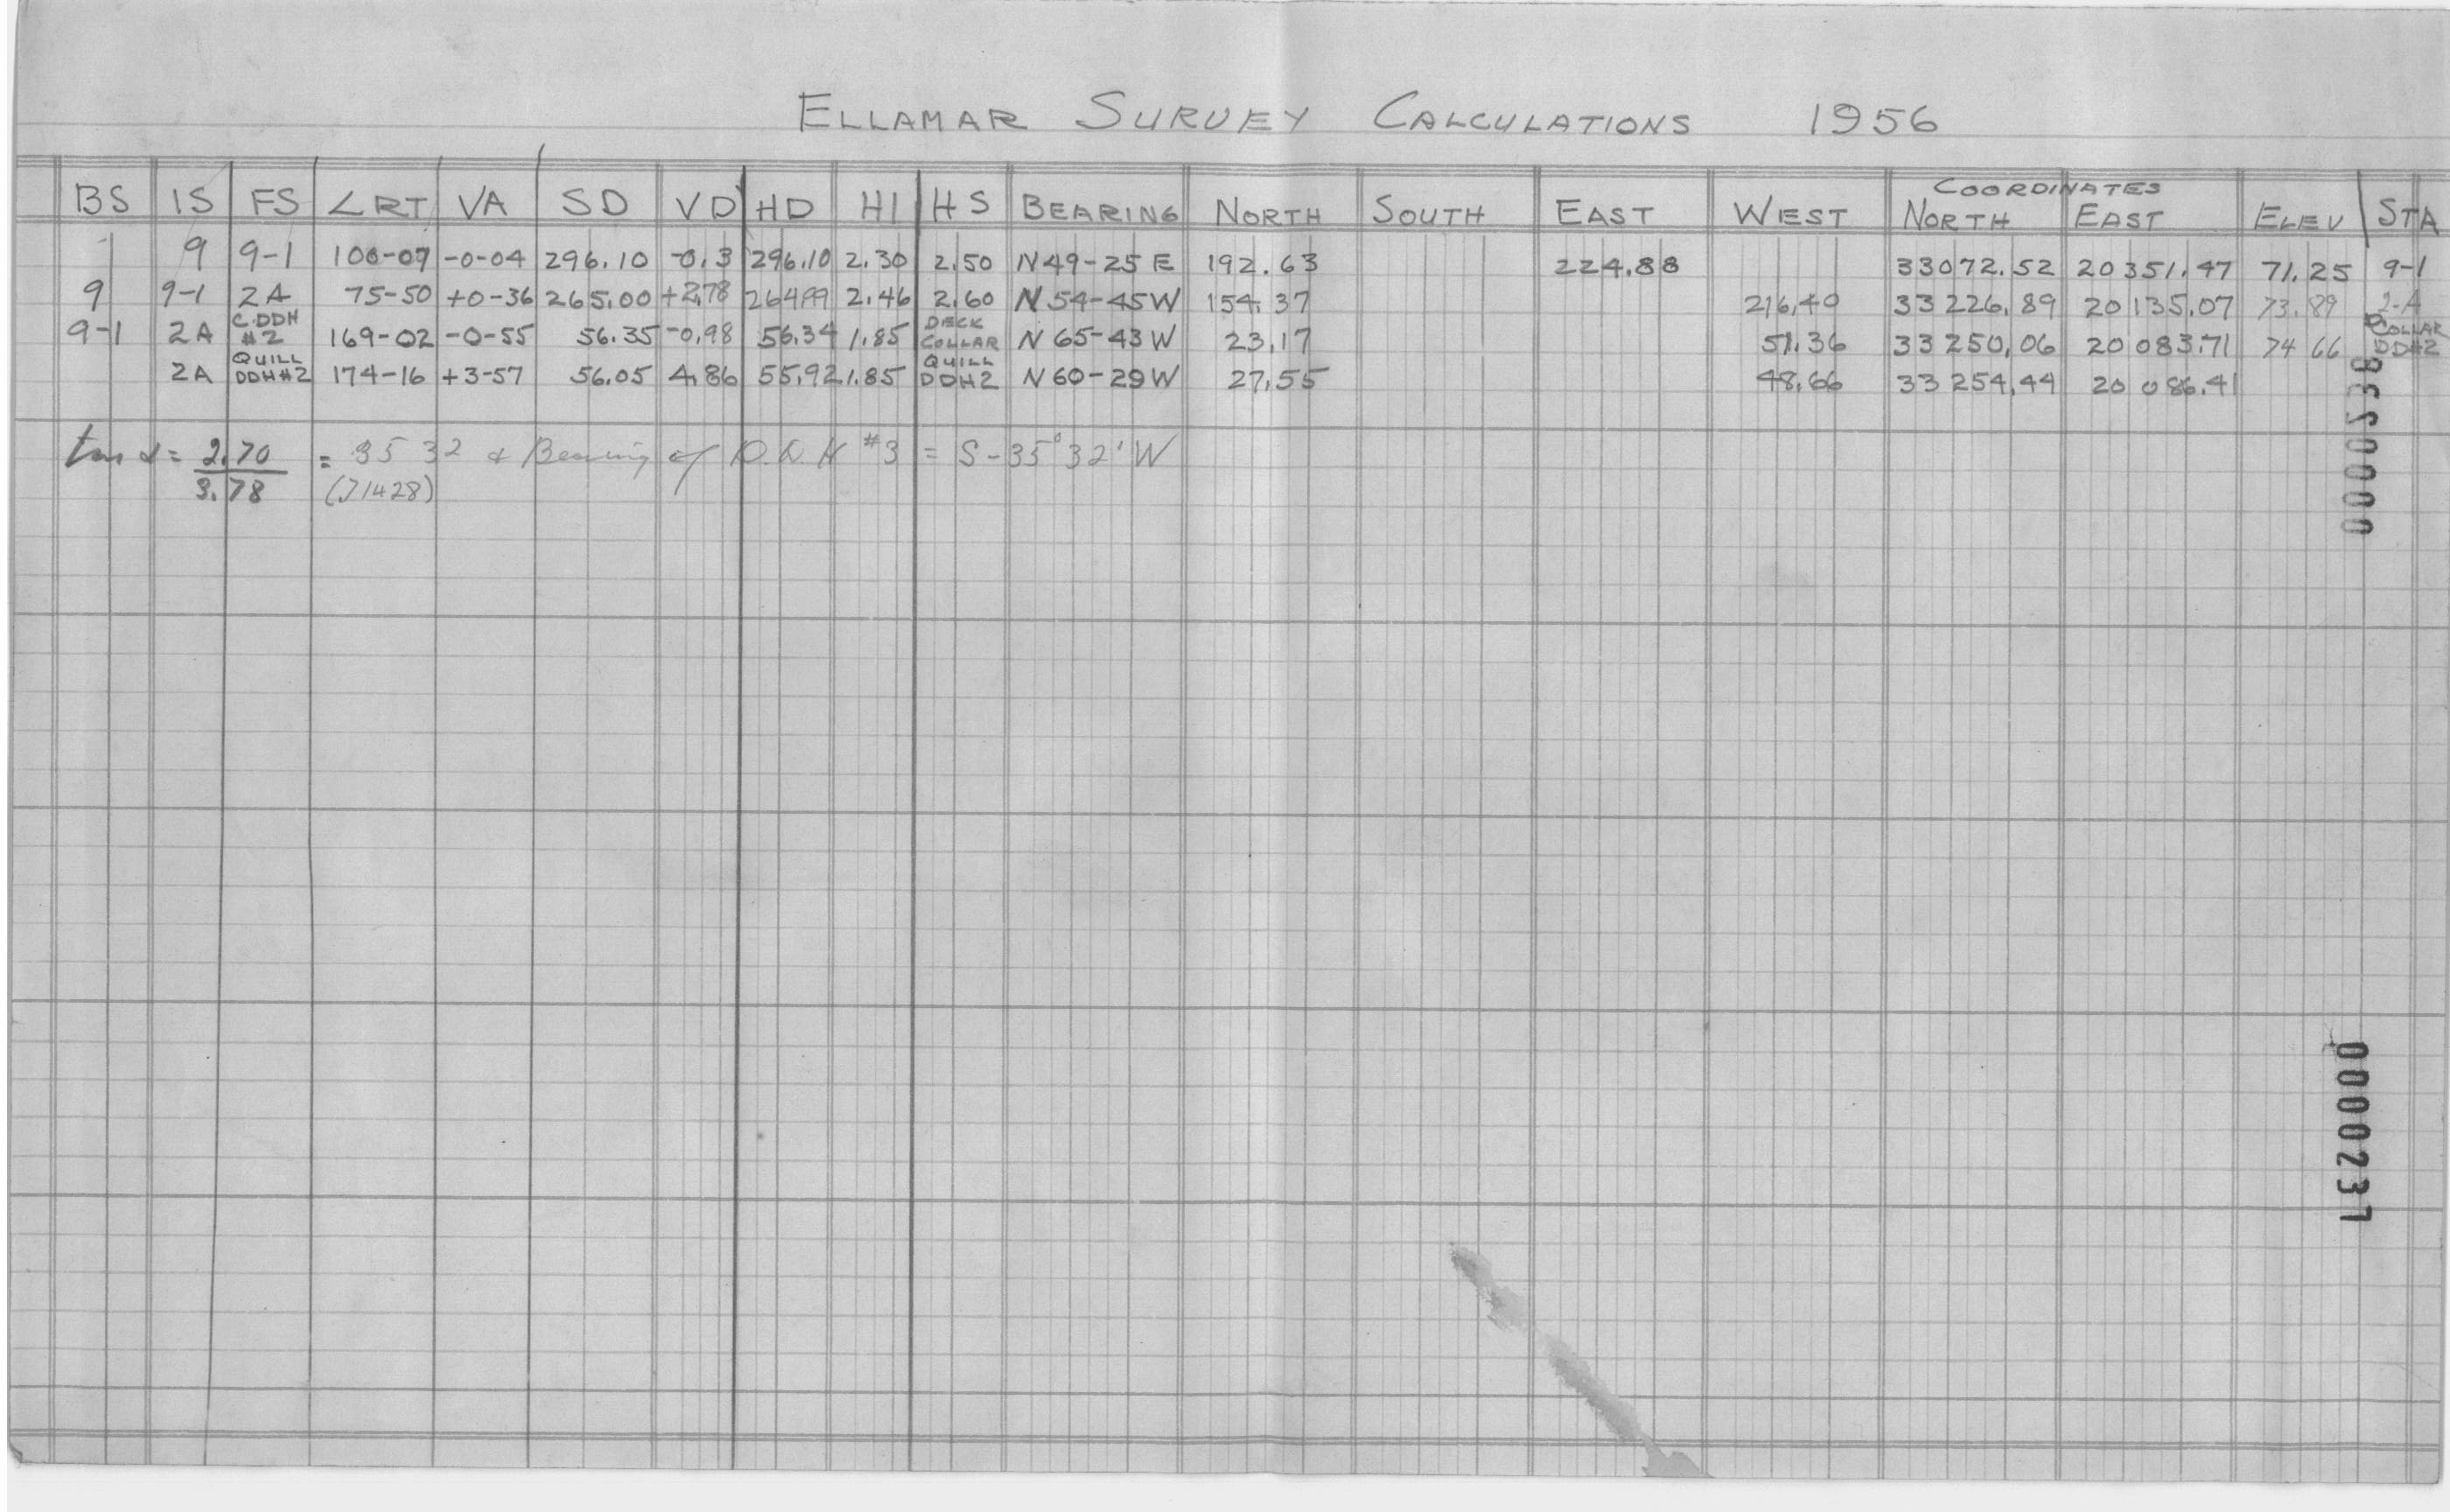 ELLAMAR SURVEY CALCULATIONS 1956
COORDINATES
BS IS FS ∠RT VA SD VD HD HI HS BEARING NORTH SOUTH EAST WEST NORTH EAST ELEV STA
9 9-1 100-07 -0-04 296.10 -0.3 296.10 2.30 2.50 N49-25E 192.63 224.88 33072.52 20351.47 71.25 9-1
9 9-1 2A 75-50 +0-36 265.00 +2.78 264.99 2.46 2.60 N54-45W 154.37 216.40 33226.89 20135.07 73.89 2-A
9-1 2A C.DDH #2 169-02 -0-55 56.35 -0.98 56.34 1.85 DECK COLLAR N65-43W 23.17 51.36 33250.06 20083.71 74 66 COLLAR DDH2
2A QUILL DDH#2 174-16 +3-57 56.05 4.86 55.92 1.85 QUILL DDH2 N60-29W 27.55 48.66 33254.44 20086.41
tan α = 2.70 / 3.78 = 35 32 & Bearing of D.D.H #3 = S-35°32'W
(.71428)
0000238
0000237